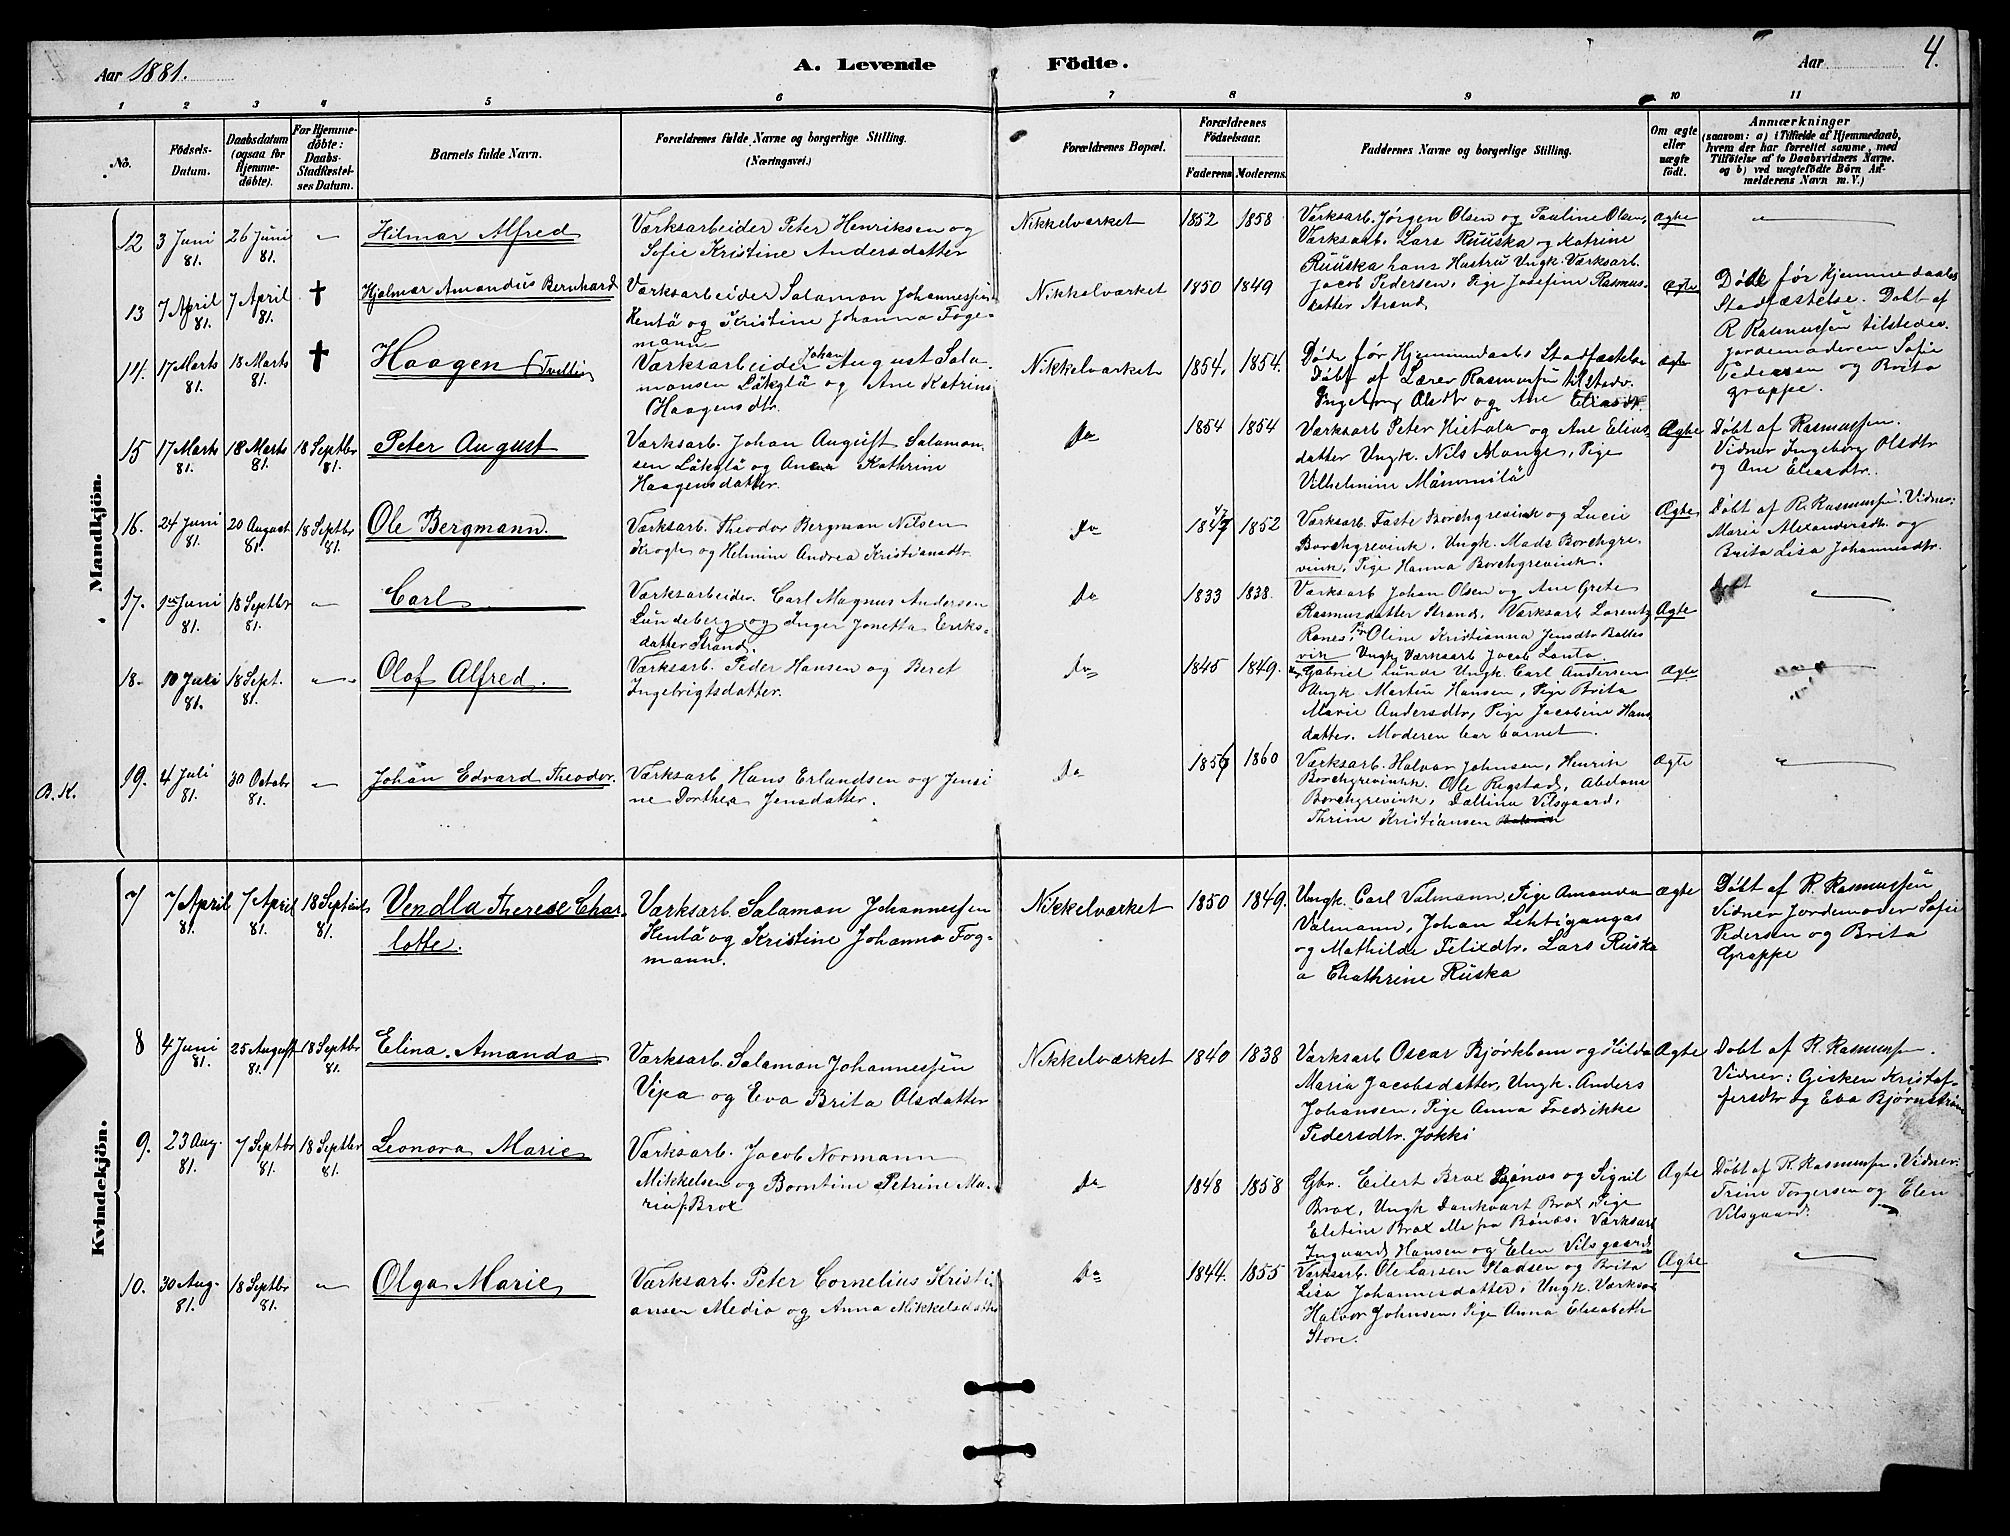 Aar 1881.
A. Levende Födte.
Aar
4.
1 2 3 4 5 6 7 8 9 10 11
No.
Födsels-
Datum.
Daabsdatum
(ogsaa for
Hjemme-
döbte).
For Hjemme-
döbte:
Daabs-
Stadfæstel-
ses Datum.
Barnets fulde Navn.
Forældrenes fulde Navne og borgerlige Stilling.
(Næringsvei.)
Forældrenes Bopæl.
Forældrenes
Födselsaar.
Faderens Moderens.
Faddernes Navne og borgerlige Stilling.
Om ægte
eller
uægte
födt.
Anmærkninger
(saasom: a) i Tilfælde af Hjemmedaab,
hvem der har forrettet samme, med
Tilföielse af to Daabsvidners Navne.
og b) ved uægtefödte Börn An-
melderens Navn m. V.)
Mandkjön.
12 3 Juni 81. 26 Juni 81. " Hilmar Alfred
Værksarbeider Peter Henriksen og
Sofie Kristine Andersdatter
Nikkelværket 1852 1858
Værksarb. Jørgen Olsen og Pauline Olsen,
Værksarb. Lars Ruuska og Katrine
Ruuska hans Hustru Ungk. Værksarb.
Jacob Pedersen, Pige Josefine Rasmus-
datter Strand,
ægte "
13 7 April 81. 7 April 81. † Hjalmar Amandus Bernhard
Værksarbeider Salamon Johannessen
Hentä og Kristine Johanna Foge-
mann
Nikkelværket 1850 1849
ægte
Døde før Hjemmedaabs
Stadfæstelse. Døbt af
R Rasmussen tilstedev.
jordemoderen Sofie
Pedersen og Brita
Grappe.
14. 17 Marts 81. 18 Marts 81. † Haagen (Tvilling
Værksarbeider Johan August Sala-
monsen Läkglä og Ane Katrine
Haagensdtr.
Nikkelværket 1854. 1854.
Døde før Hjemmedaabs Stadfæstelse
Døbt af Lærer Rasmussen tilstedv.
Ingeborg Olsdtr og Ane Eliasdtr.
ægte
15 17 Marts 81. 18 Marts 81. 18 Septbr 81. Peter August
Værksarb. Johan August Salamon-
sen Läkglä og Ane Kathrine
Haagensdatter.
Do 1854 1854
Værksarb Peter Hietala og Ane Elias-
datter Ungk. Nils Mange, Pige
Vilhelmine
Ægte
Døbt af Rasmussen.
Vidner Ingeborg Olsdtr
og Ane Eliasdtr.
16. 24 Juni 81. 20 August 81. 18 Septbr 81. Ole Bergmann.
Værksarb. Theodor Bergman Nilsen
Krogh og Helmine Andrea Kristiansdtr
Do 1847 1852
Værksarb. Faste Borchgrevink og Lucie
Borchgrevink. Ungk. Mads Borchgre-
vink, Pige Hanna Borchgrevink.
Ægte
Døbt af R. Rasmussen. Vidner:
Marie Alexandersdtr. og
Brita Lisa Johannesdtr.
17. Juni 81. 18 Septbr 81. " Carl
Værksarbeider Carl Magnus Andersen
Lundeberg og Inger Jonetta Eriks-
datter Strand.
Do 1833 1838.
Værksarb Johan Olsen og Ane Grete
Rasmusdatter Strand, Værksarb Lorentz
Ranes, Pig Oline Kristianna Jensdtr Baltes
vik Ungk Værksarb Jacob Lanto
Ægte
Døbt "
18. 10 Juli 81. 18 Sept. 81. " Olof Alfred.
Værksarb. Peder Hansen og Beret
Ingebrigtsdatter.
Do 1845 1849.
Gabriel Lunde Ungk Carl Andersen
Ungk Martin Hansen, Pige Brita
Marie Andersdtr, Pige Jacobine Hans
datter. Moderen bar barnet.
Ægte
B. K.
19. 4 Juli 81. 30 Octobr 81. " Johan Edvard Theodor.
Værksarb. Hans Erlandsen og Jensi
ne Dorthea Jensdatter.
Do 1856 1860
Værksarb. Halvor Johnsen, Henrik
Borchgrevink. Ole Regstad, Abelone
Borchgrevink, Dallina Vilsgaard,
Thrine Kristiansen
Ægte "
Kvindekjön.
7 7 April 81. 7 April 81. 18 Septembr 81. Vendla Therese Char-
lotte.
Værksarb. Salamon Johannessen
Hentä og Kristine Johanna Fog-
mann.
Nikkelværket 1850 1849.
Ungk. Carl Valmann, Pige Amanda
Valmann, Johan Lehtigangas
og Mathilde Felixdtr. Lars Ruska
o Chathrine Ruska
Ægte
Døbt af R. Rasmussen
Vidner Jordemoder Sofie
Pedersen og Brita
Grappe
8 4 Juni 81. 25 August 81. 18 Septbr 81. Elina Amanda
Værksarb. Salamon Johannessen
Vipa og Eva Brita Olsdatter
Nikkelværket 1840 1838
Værksarb Oscar Bjørkbom og Hilda
Maria Jacobsdatter, Ungk. Anders
Johansen, Pige Anna Fredrikke
Pedersdtr. Jokki
Ægte
Døbt af R. Rasmussen.
Vidner: Gisken Kristof-
fersdtr og Eva Bjørnstrøm
9. 23 Aug. 81. 7 Septbr 81. 18 Septbr 81. Leonora Marie
Værksarb. Jacob Normann
Mikkelsen og Borntine Petrine Ma-
rie f. Brox
Do 1848 1858
Gbr. Eilert Brox Bønæs og Sigril
Brox, Ungk Dankvart Brox, Pige
Elitine Brox alle fra Bønæs. Værksarb
Ingvard Hansen og Elen Vilsgaard
Ægte
Døbt af R. Rasmussen. Vidner:
Trine Torgersen og Elen
Vilsgaard.
10. 30 Aug. 81. 18 Septbr 81. " Olga Marie
Værksarb. Peter Cornelius Kristi-
ansen Medio og Anna Mikkelsdatter
Do 1844. 1855
Værksarb. Ole Larsen Stadsen og Brita
Lisa Johannesdatter, Ungk. Værksar
Halvor Johnsen, Pige Anna Elisabeth
Store.
Ægte "